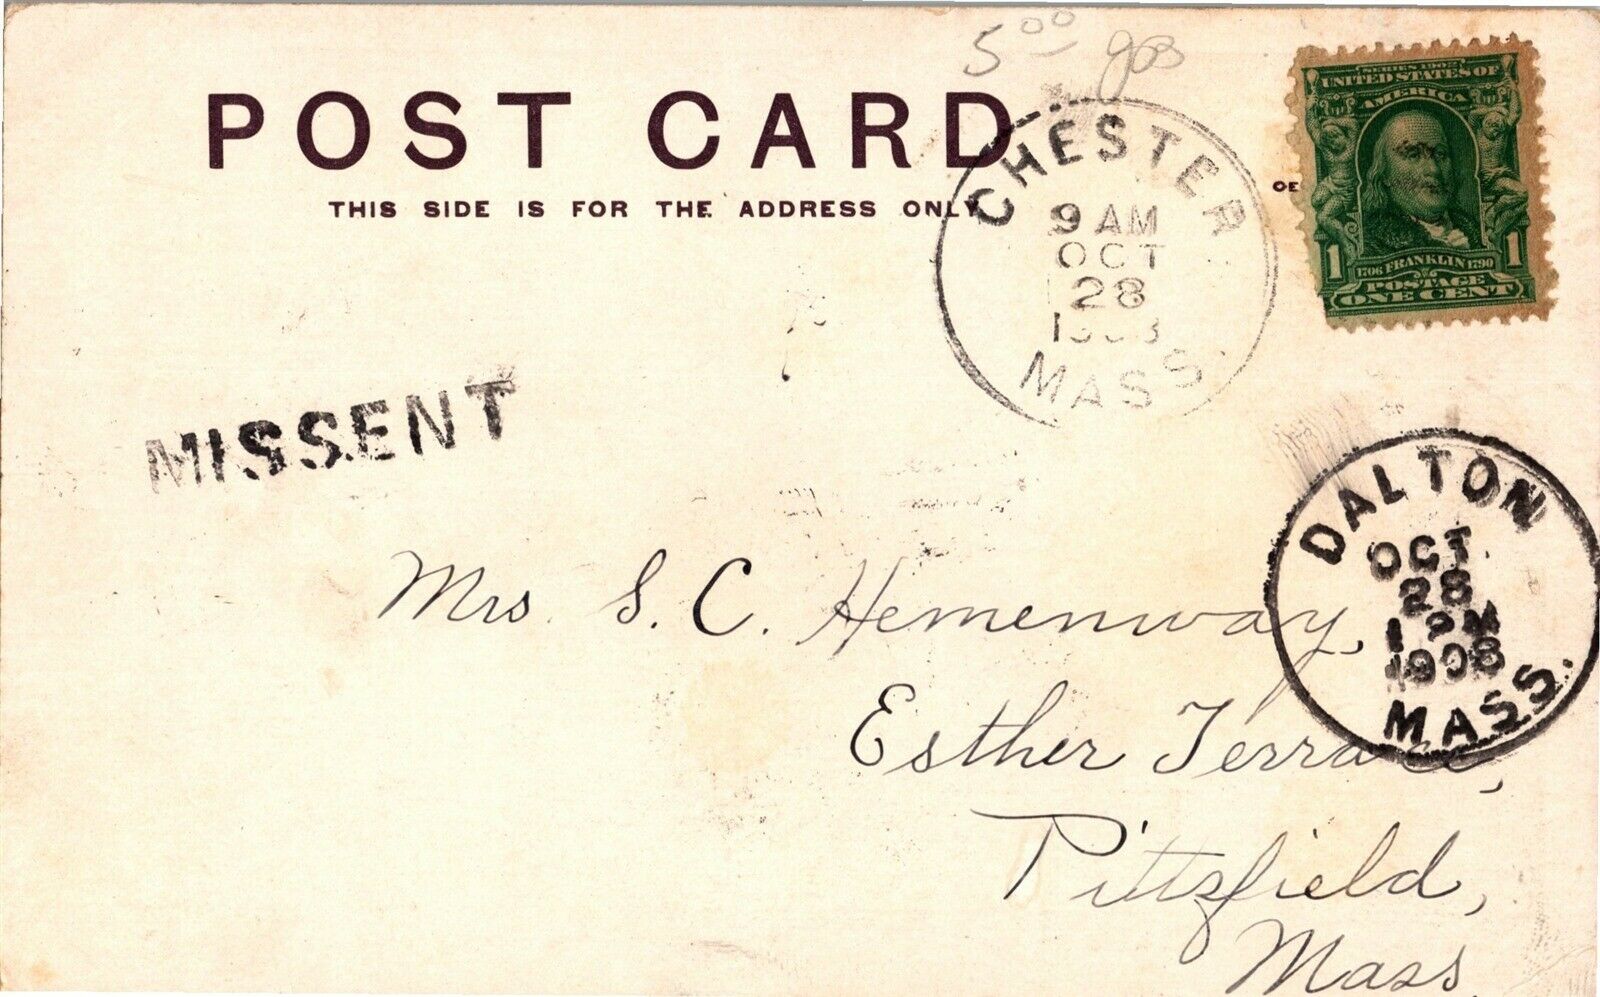 5⁰⁰
POST CARD
THIS SIDE IS FOR THE ADDRESS ONLY
CHESTER
9 AM
OCT
28
MASS
OE
SERIES 1902
UNITED STATES OF
AMERICA
1 1
1706 FRANKLIN 1790
POSTAGE
ONE CENT
MISSENT
DALTON
OCT.
28
1 PM
1908
MASS.
Mrs S. C. Hemenway,
Esther Terrace,
Pittsfield,
Mass.